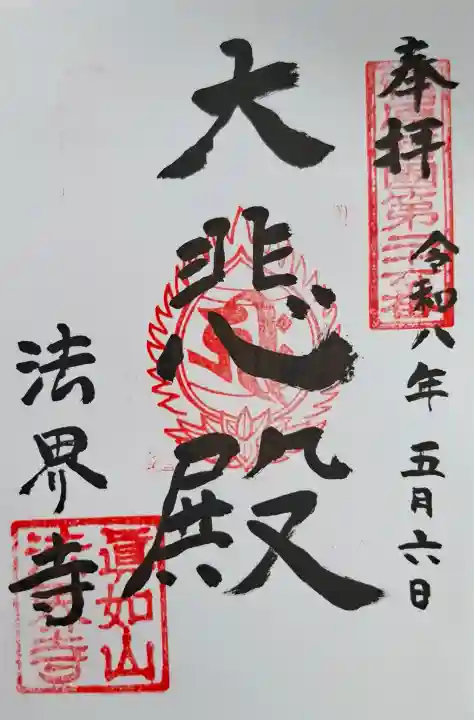 奉拝
令和八年五月六日
大悲殿
法界寺
眞如山
法界寺